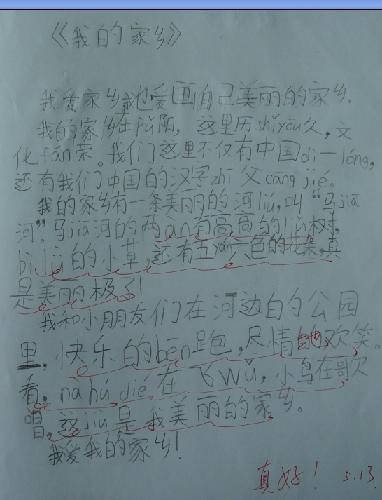 《我的家乡》
我爱家乡我也爱画自己美丽的家乡.
我的家乡在 这里历shǐ yōu久，文
化fán荣。我们这里不仅有中国dì一lóng，
还有我们中国的汉字zhī父cāng jié.
我的家乡有一条美丽的河liú，叫“马jiā
河”.马jiā河的两àn有高高的lǜ树，
bì lǜ的小草，还有五 六色的 真
是美丽极了！
我和小朋友们在河边的公园
里，快乐的bēn跑，尽情地欢笑.
看，nà hú dié在飞wǔ，小鸟在歌
唱，这jiù是我美丽的家乡。
我爱我的家乡！
真好！ 5.13